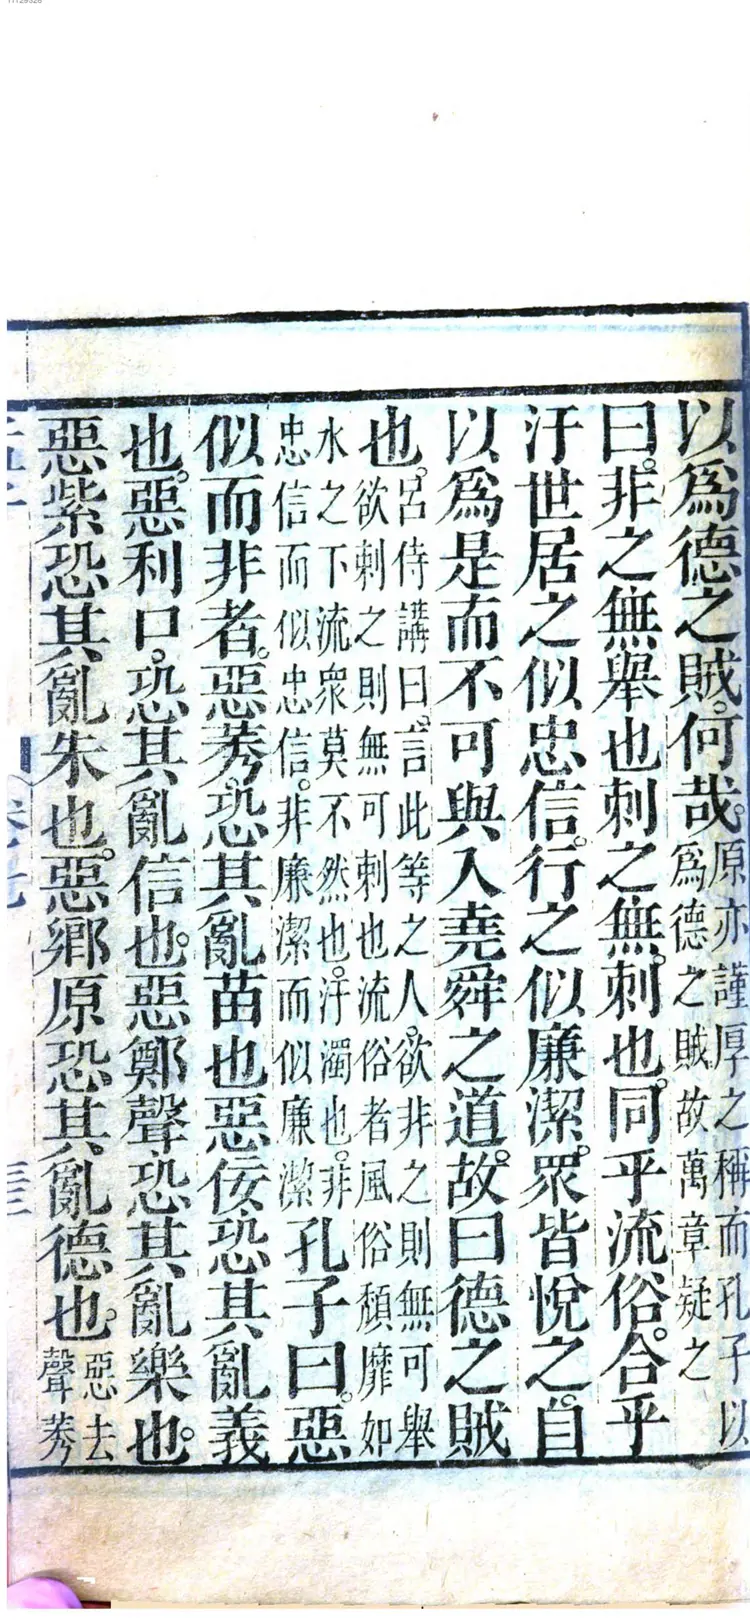 11129326
以爲德之賊。何哉。原亦謹厚之稱而孔子以
爲德之賊故萬章疑之
曰。非之無舉也刺之無。刺也。同乎流俗。合乎
汙世居之似忠信。行之似廉潔。眾皆悅之。自
以爲是而不可與入堯舜之道。故曰德之賊
也。呂侍講曰。言此等之人。欲非之則無可舉
欲刺之則無可刺也流俗者風俗頹靡如
水之下流衆莫不然也。汙濁也。非
忠信而似忠信。非廉潔而似廉潔
孔子曰。惡
似而非者。惡莠。恐其亂苗也惡佞。恐其亂義
也。惡利口。恐其亂信也。惡鄭聲。恐其亂樂也。
惡紫恐其亂朱也。惡鄉原恐其亂德也。惡去
聲莠